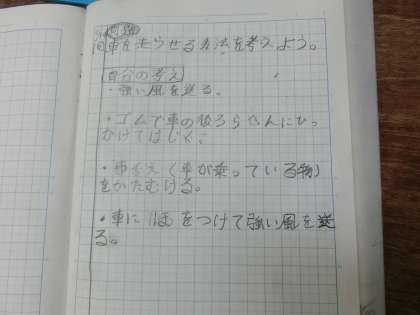 問題
車を走らせる方法を考えよう。
自分の考え
・強い風を送る。
・ゴムで車の後ろらへんにひっ
かけてはじく。
・(車が乗っている物)
をかたむける。
・車にほをつけて強い風を送
る。